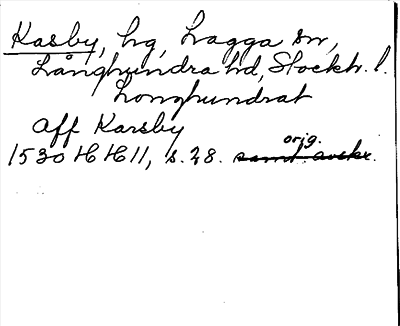 Kasby, hg, Lagga sn,
Långhundra hd, Stockh. l.
Longhundrat
Aff Karsby
orig.
1530 HH 11, s. 28. samt. avskr.